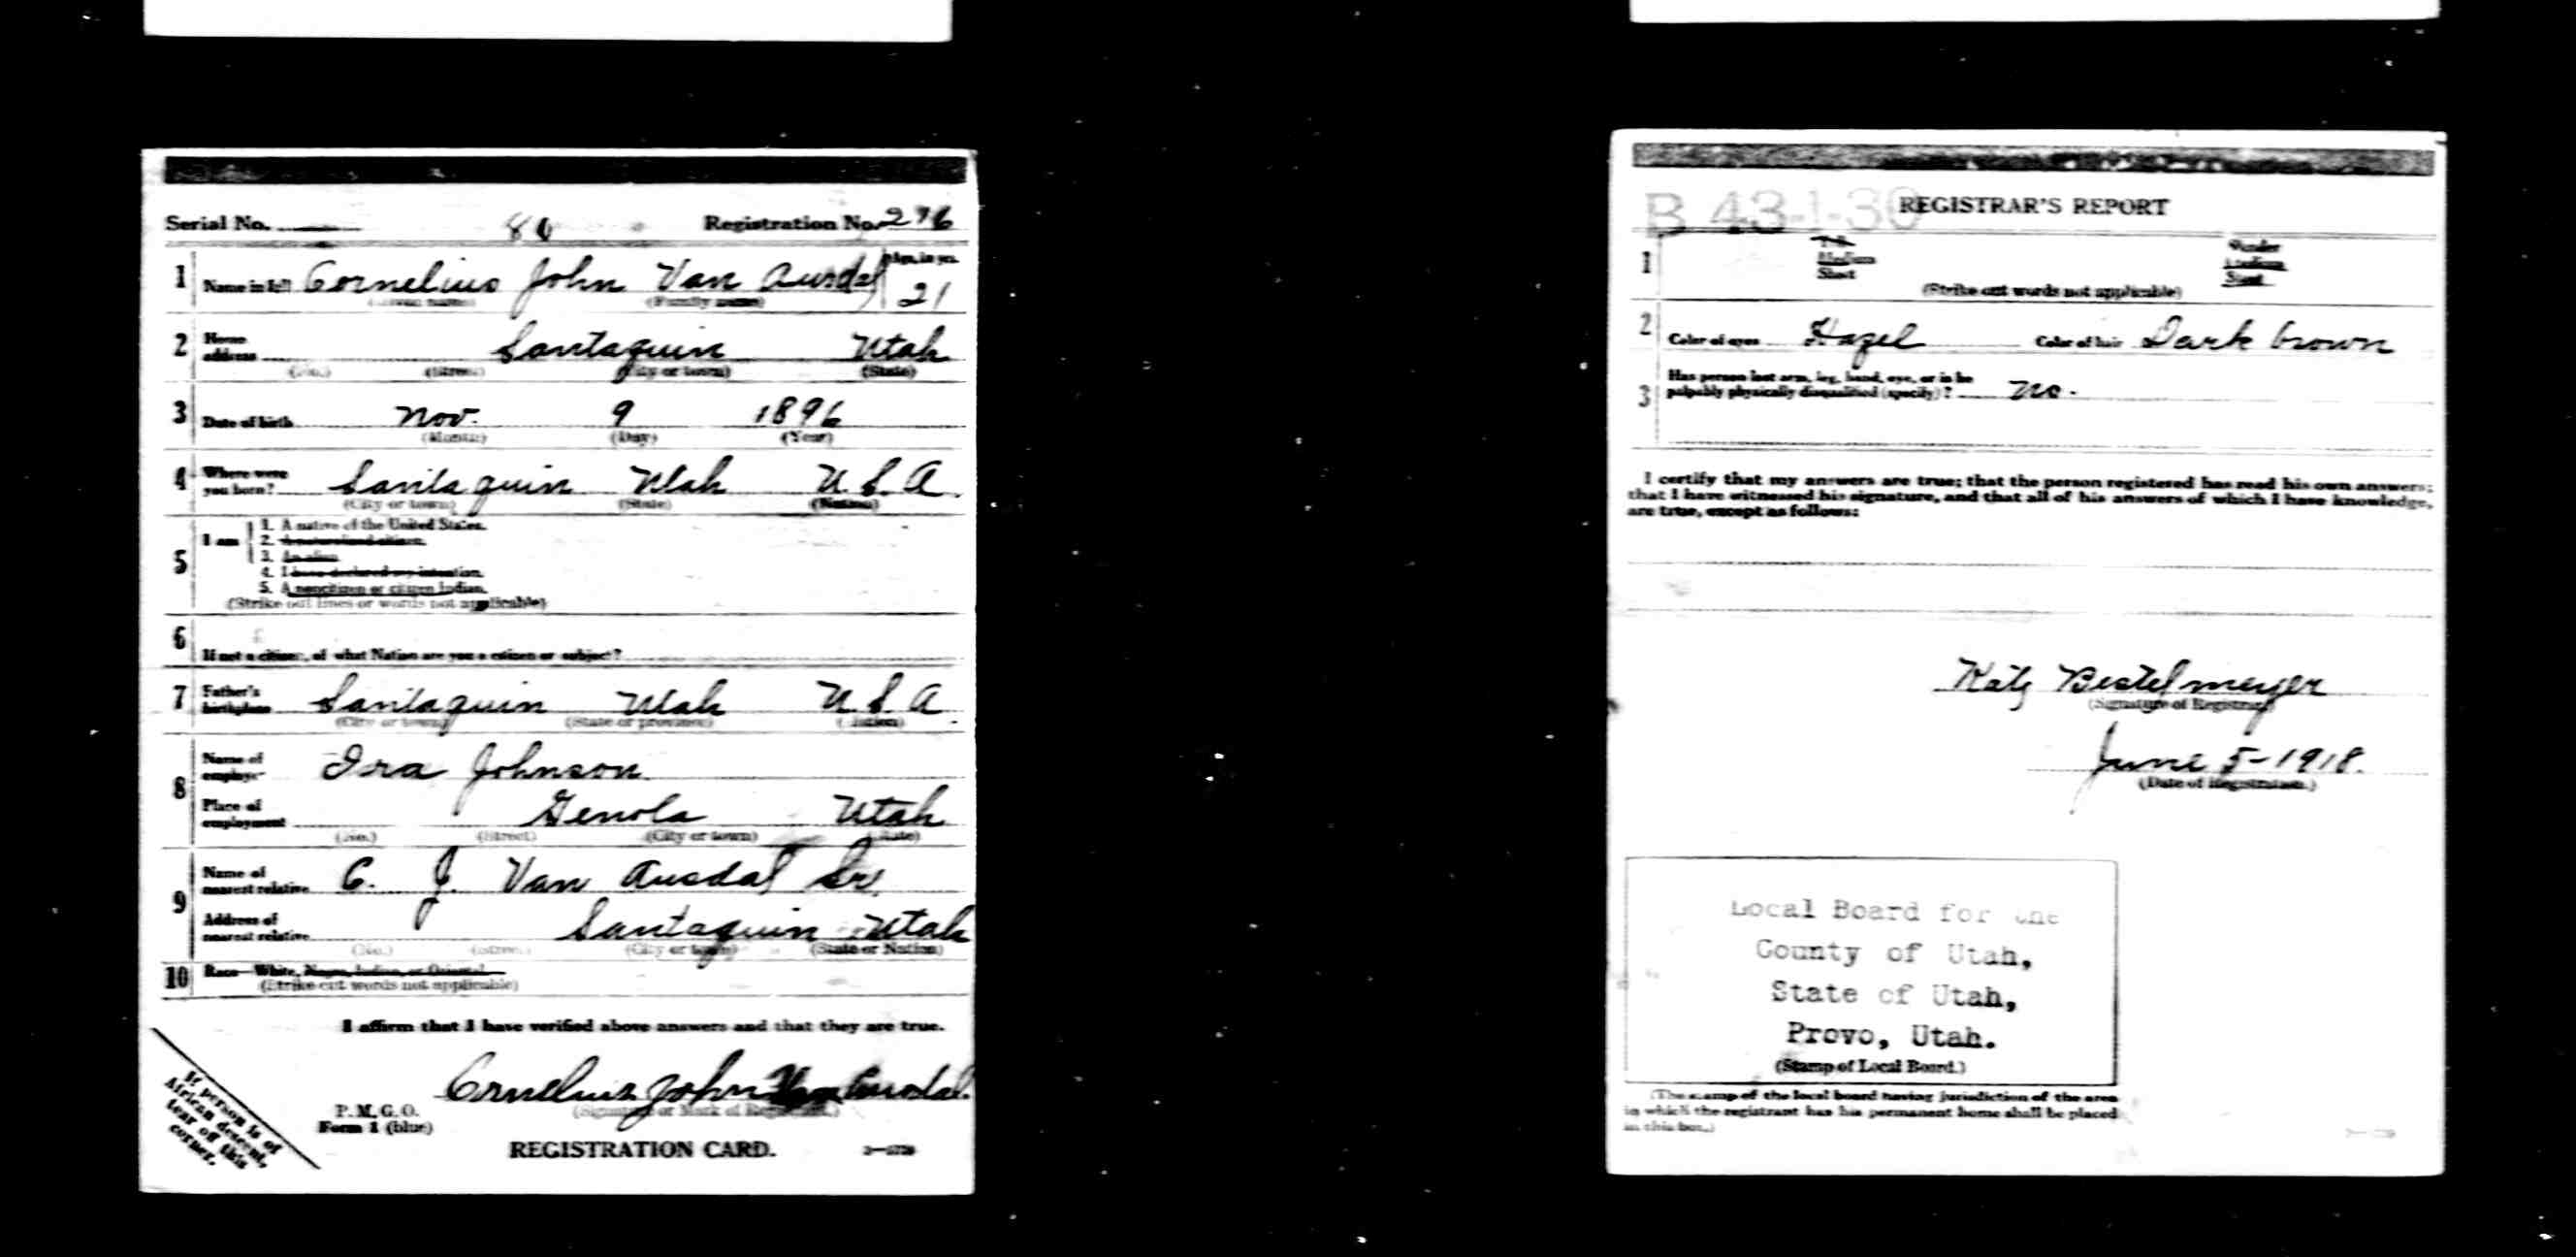 Serial No. 86 Registration No. 276
1 Name in full Cornelius John Van Ausdal Age, in yrs. 21
(Given name) (Family name)
2 Home address Santaquin Utah
(No.) (Street) (City or town) (State)
3 Date of birth Nov. 9 1896
(Month) (Day) (Year)
4 Where were you born? Santaquin Utah U.S.A.
(City or town) (State) (Nation)
5 I am
1. A native of the United States.
2. A naturalized citizen.
3. An alien.
4. I have declared my intention.
5. A noncitizen or citizen Indian.
(Strike out lines or words not applicable)
6 If not a citizen, of what Nation are you a citizen or subject?
7 Father's birthplace Santaquin Utah U.S.A.
(City or town) (State or province) (Nation)
8 Name of employer Ira Johnson
Place of employment Genola Utah
(No.) (Street) (City or town) (State)
9 Name of nearest relative C. J. Van Ausdal Sr.
Address of nearest relative Santaquin Utah
(No.) (Street) (City or town) (State or Nation)
10 Race—White, Negro, Indian, or Oriental
(Strike out words not applicable)
I affirm that I have verified above answers and that they are true.
Cornelius John Van Ausdal.
(Signature or Mark of Registrant.)
P. M. G. O.
Form 1 (blue)
REGISTRATION CARD.
If person is of
African descent,
tear off this
corner.
B 43-1-30 REGISTRAR'S REPORT
1 Tall Slender
Medium Medium
Short Stout
(Strike out words not applicable)
2 Color of eyes Hazel Color of hair Dark brown
3 Has person lost arm, leg, hand, eye, or is he
palpably physically disqualified (specify)? No.
I certify that my answers are true; that the person registered has read his own answers;
that I have witnessed his signature, and that all of his answers of which I have knowledge,
are true, except as follows:
Bestelmeyer
(Signature of Registrar)
June 5-1918.
(Date of Registration.)
Local Board for the
County of Utah,
State of Utah,
Provo, Utah.
(Stamp of Local Board.)
(The stamp of the local board having jurisdiction of the area
in which the registrant has his permanent home shall be placed
in this box.)